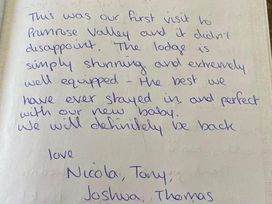 This was our first visit to
Primrose Valley and it didn't
disappoint. The lodge is
simply stunning and extremely
well equipped - the best we
have ever stayed in and perfect
with our new baby.
We will definitely be back
love
Nicola, Tony,
Joshua, Thomas